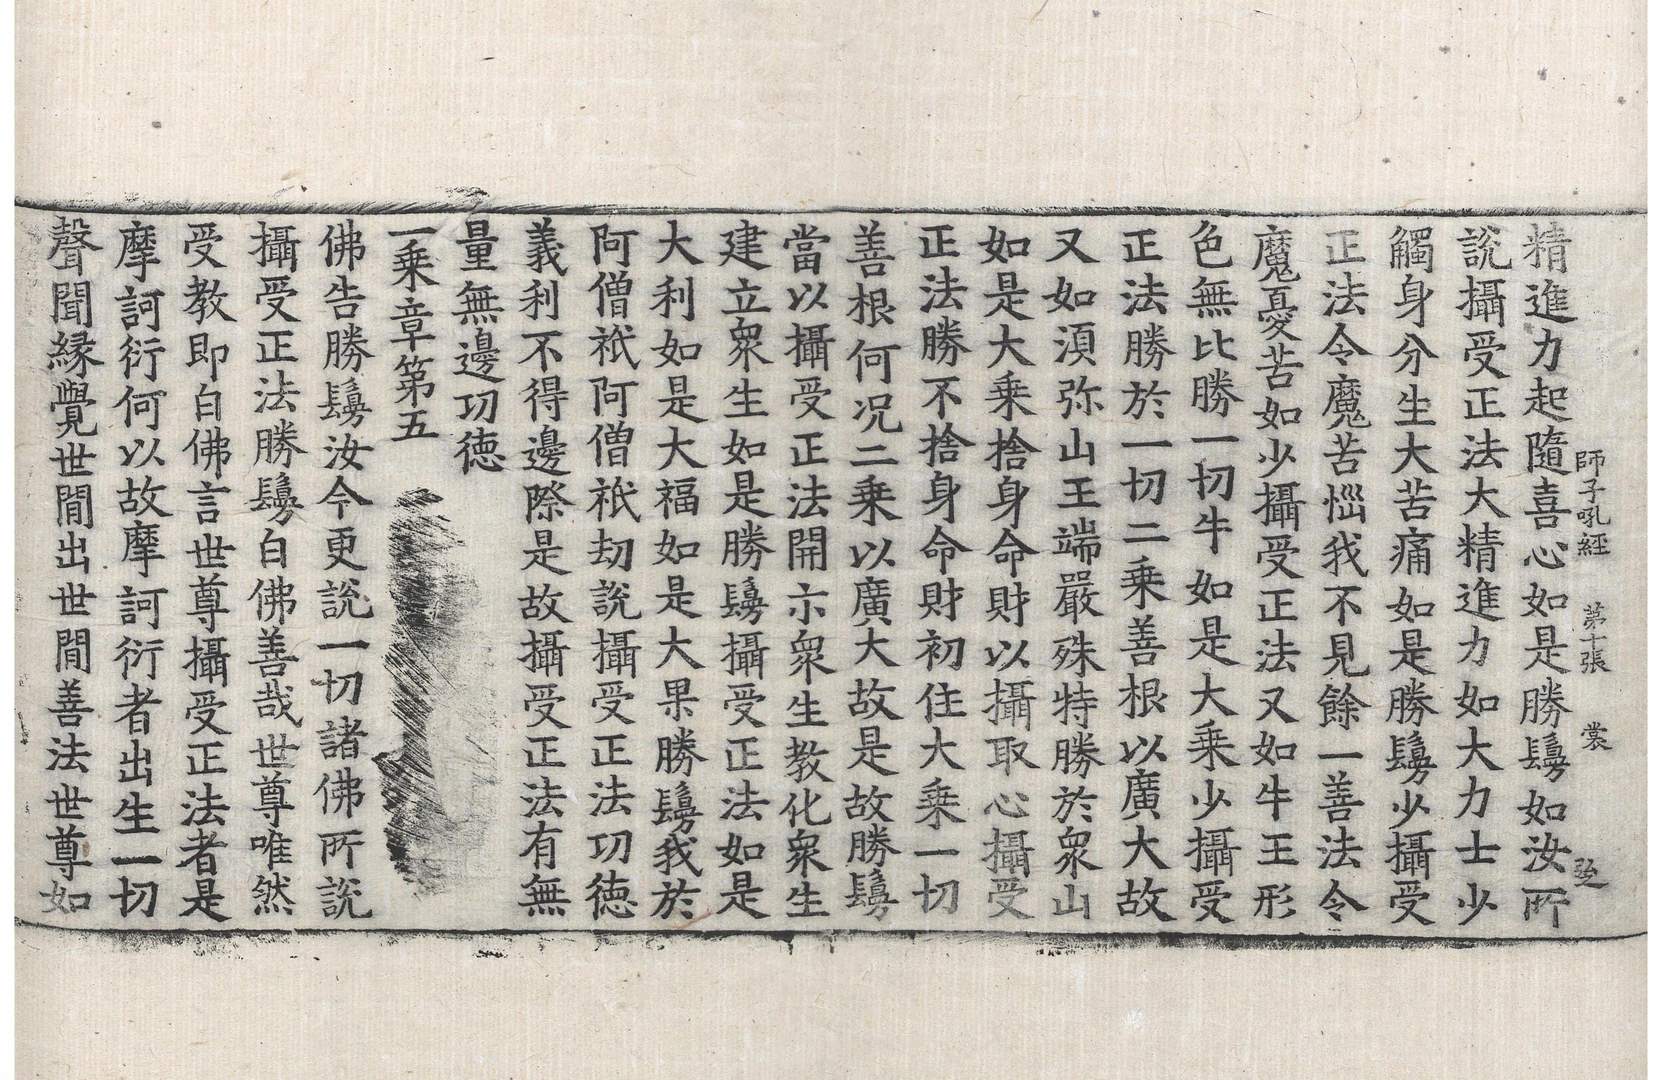 師子吼經 第十張 裳
精進力起隨喜心如是勝鬘如汝所
說攝受正法大精進力如大力士少
觸身分生大苦痛如是勝鬘少攝受
正法令魔苦惱我不見餘一善法令
魔憂苦如少攝受正法又如牛王形
色無比勝一切牛如是大乘少攝受
正法勝於一切二乘善根以廣大故
又如湏弥山王端嚴殊特勝於衆山
如是大乘捨身命財以攝取心攝受
正法勝不捨身命財初住大乘一切
善根何况二乘以廣大故是故勝鬘
當以攝受正法開示衆生教化衆生
建立衆生如是勝鬘攝受正法如是
大利如是大福如是大果勝鬘我於
阿僧祇阿僧祇劫說攝受正法功德
義利不得邊際是故攝受正法有無
量無邊功德
一乘章第五
佛告勝鬘汝今更說一切諸佛所說
攝受正法勝鬘白佛善哉世尊唯然
受教即白佛言世尊攝受正法者是
摩訶衍何以故摩訶衍者出生一切
聲聞緣覺世間出世間善法世尊如